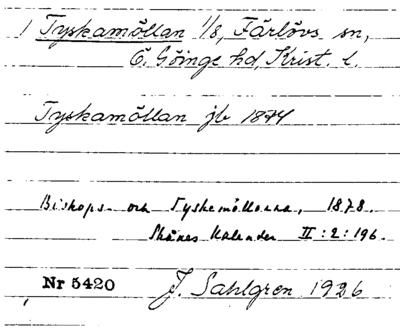 1 Tyskamöllan 1/8, Färlövs sn,
Ö. Göinge hd, Krist. l.
Tyskamöllan jb 1874
Biskops- och Tyskemöllorna, 1878.
Skånes Kalender II:2:196.
Nr 5420 J. Sahlgren 1926